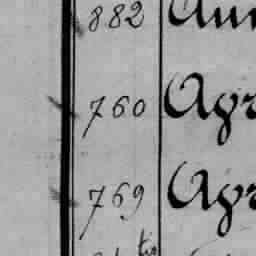 882
760 Agr
769 Agr